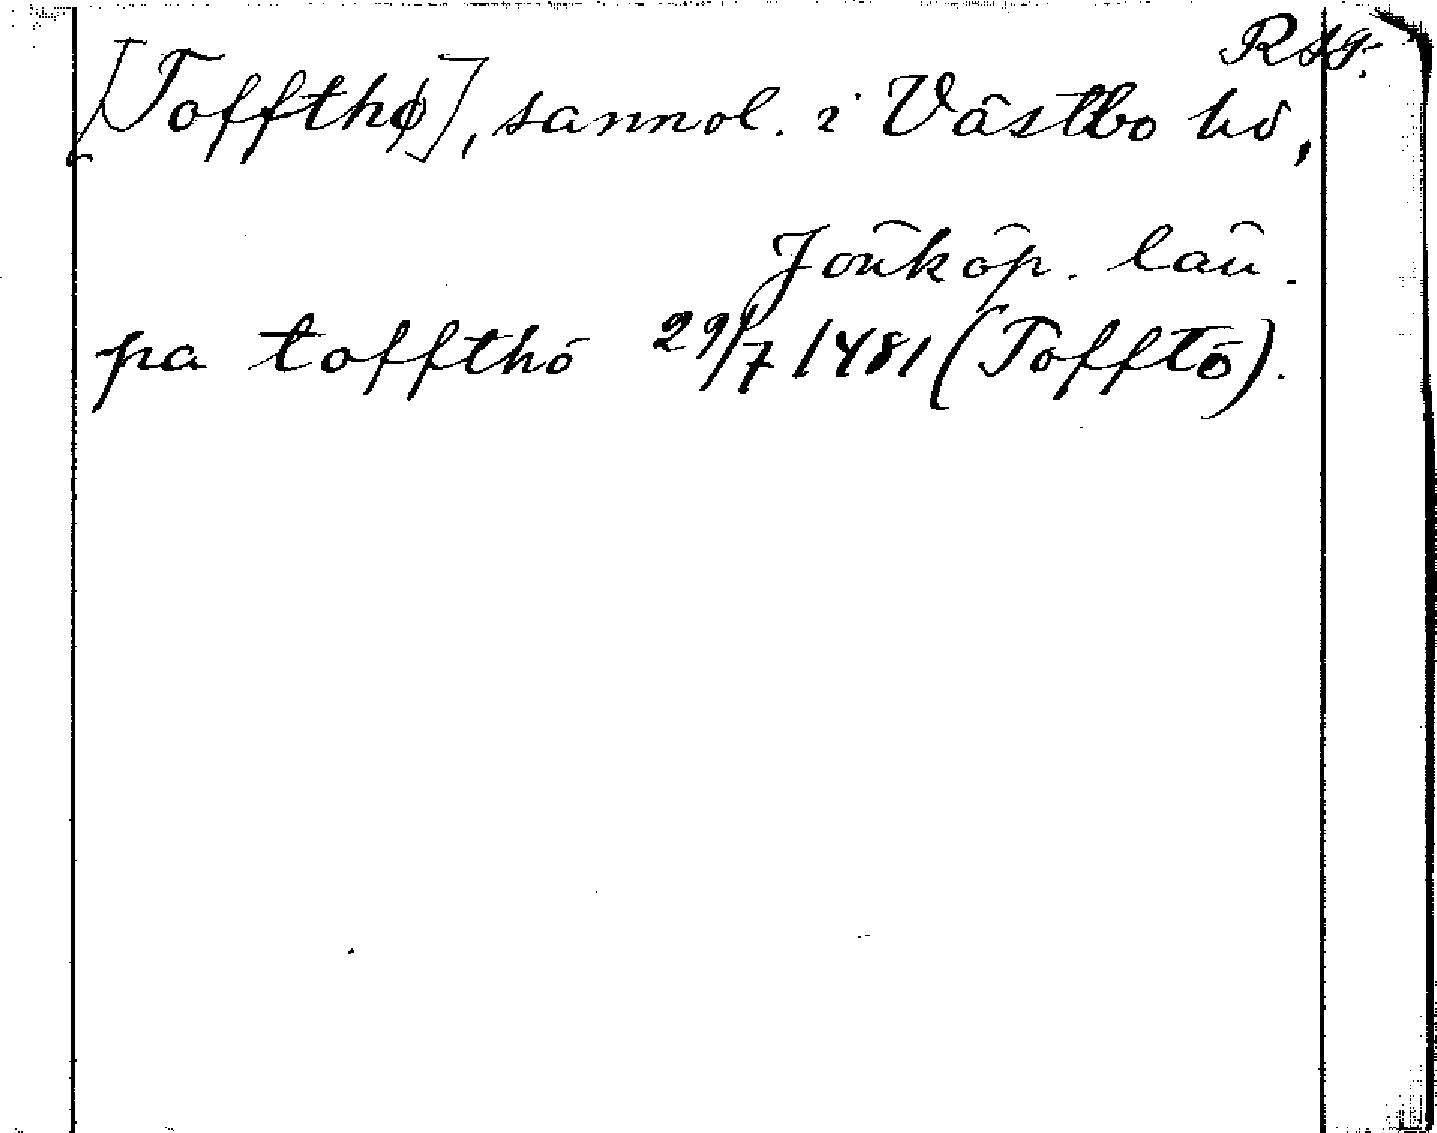 RAP.
[Toffthø], sannol. i Västbo hd,
Jönköp. län.
pa toffthö 29/7 1481 (Tofftö).